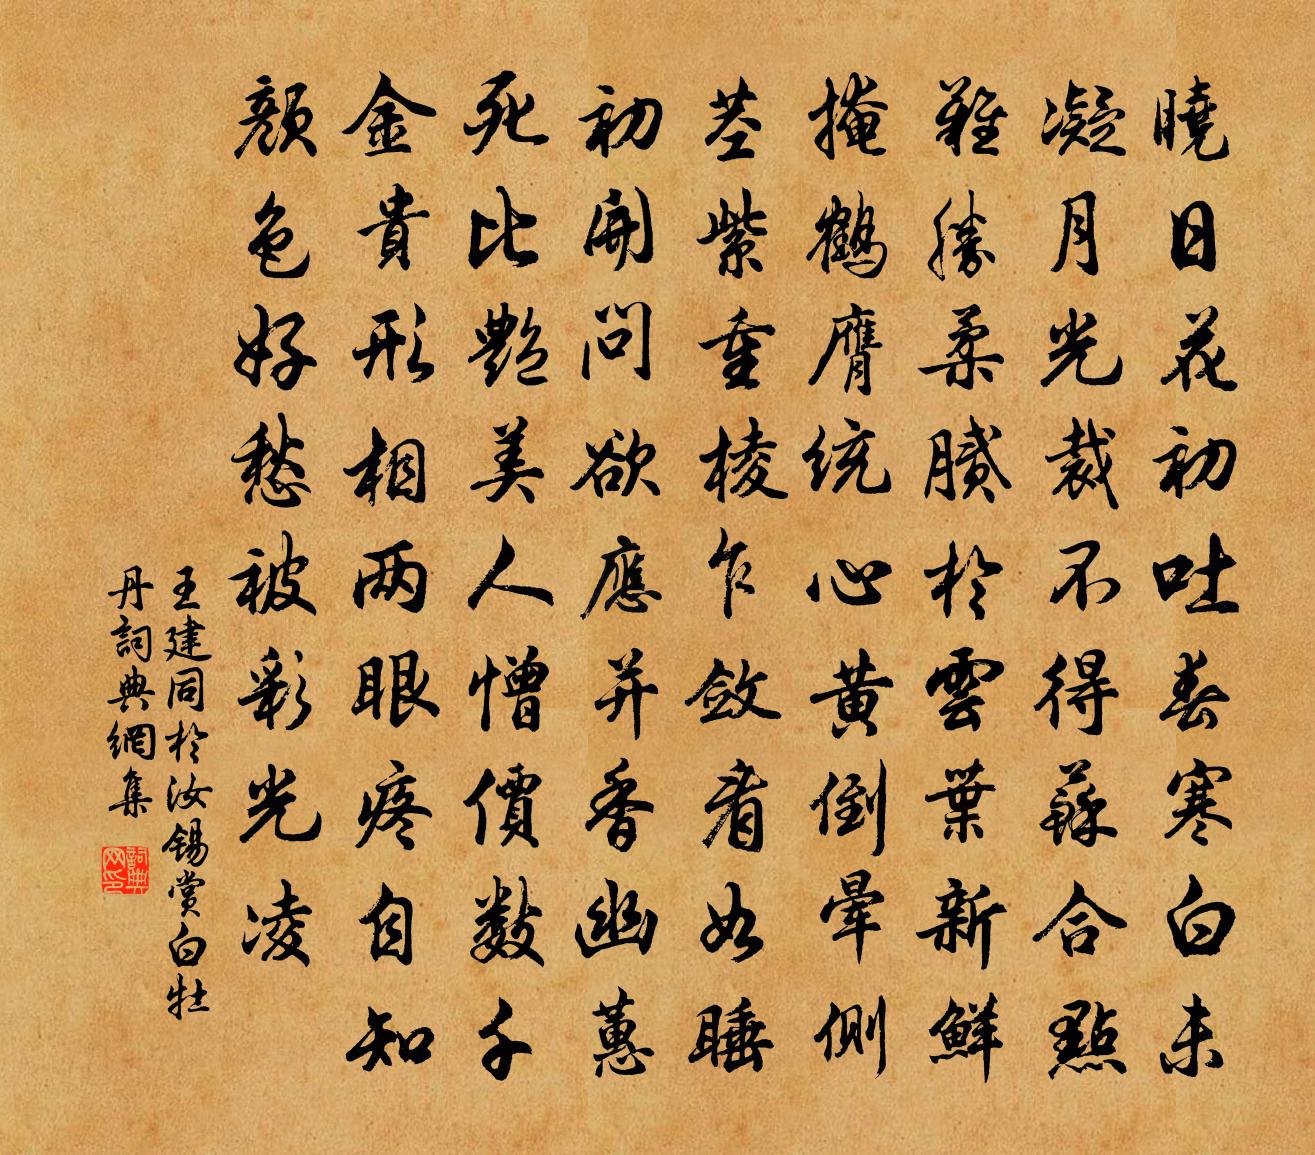 曉日花初吐春寒白未
凝月光裁不得蘇合點
難勝柔膩於雲葉新鮮
掩鶴膺統心黃倒暈側
莖紫重棱乍斂看如睡
初開問欲應并香幽蕙
死比艷美人憎價數千
金貴形相两眼疼自知
顏色好愁被彩光凌
王建同於汝錫賞白牡
丹詞典網集
詞典
网印